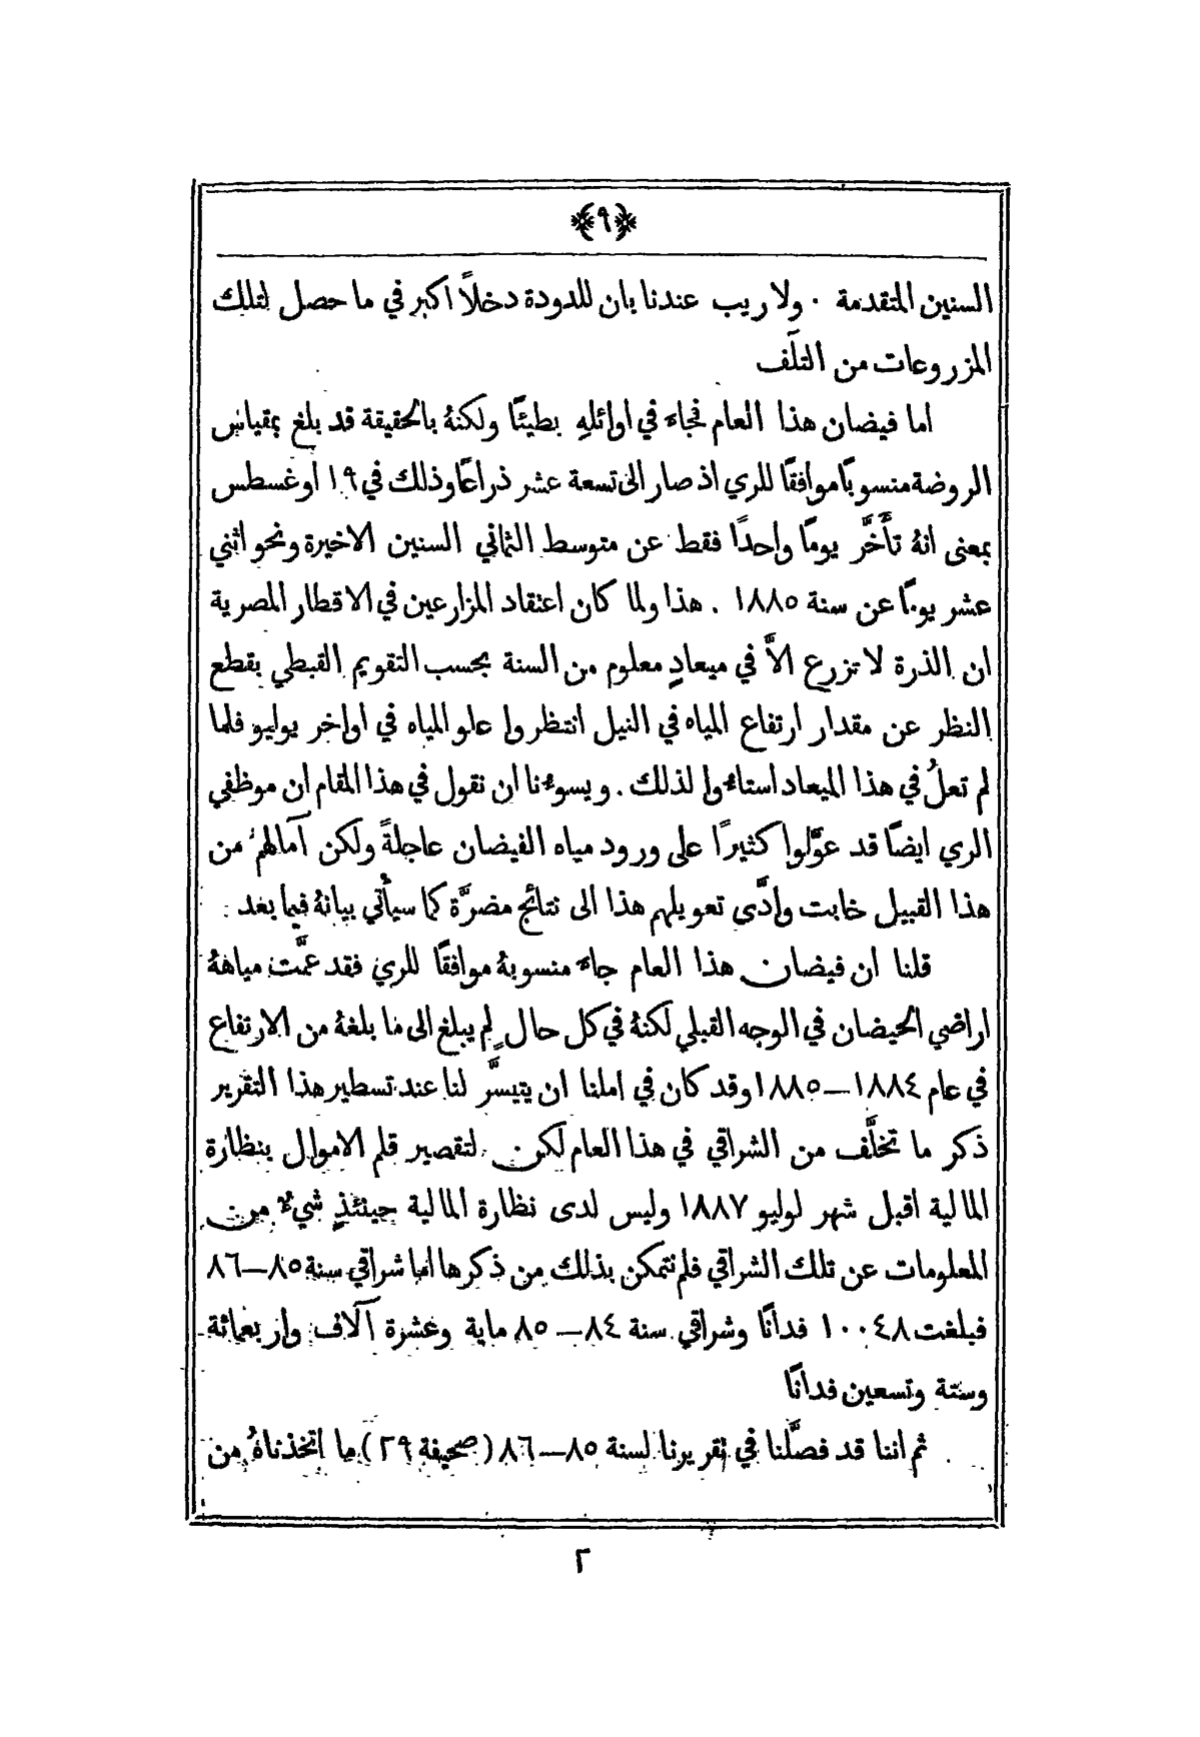 ﴿٩﴾
السنين المتقدمة . ولا ريب عندنا بان للدودة دخلاً اكبر في ما حصل لتلك
المزروعات من التلَف
اما فيضان هذا العام فجاء في اوائلهِ بطيئًا ولكنهُ بالحقيقة قد بلغ بمقياس
الروضة منسوبًا موافقًا للري اذ صار الى تسعة عشر ذراعًا وذلك في ١٩ اوغسطس
بمعنى انهُ تأَخَّر يومًا واحدًا فقط عن متوسط الثماني السنين الاخيرة ونحو اثني
عشر يومًا عن سنة ١٨٨٥ . هذا ولما كان اعتقاد المزارعين في الاقطار المصرية
ان الذرة لا تزرع الاَّ في ميعادٍ معلوم من السنة بحسب التقويم القبطي بقطع
النظر عن مقدار ارتفاع المياه في النيل انتظروا علو المياه في اواخر يوليو فلما
لم تعلُ في هذا الميعاد استاءوا لذلك . ويسوءنا ان نقول في هذا المقام ان موظفي
الري ايضًا قد عوَّلوا كثيرًا على ورود مياه الفيضان عاجلةً ولكن آمالهم من
هذا القبيل خابت وادَّى تعويلهم هذا الى نتائج مضرَّة كما سيأتي بيانهُ فيما بعد
قلنا ان فيضان هذا العام جاء منسوبهُ موافقًا للري فقد عمَّت مياههُ
اراضي الحيضان في الوجه القبلي لكنهُ في كل حال لم يبلغ الى ما بلغهُ من الارتفاع
في عام ١٨٨٤—١٨٨٥ وقد كان في املنا ان يتيسَّر لنا عند تسطير هذا التقرير
ذكر ما تخلَّف من الشراقي في هذا العام لكن لتقصير قلم الاموال بنظارة
المالية اقبل شهر لوليو ١٨٨٧ وليس لدى نظارة المالية حينئذٍ شيء من
المعلومات عن تلك الشراقي فلم نتمكن بذلك من ذكرها اما شراقي سنة ٨٥—٨٦
فبلغت ١٠٠٤٨ فدانًا وشراقي سنة ٨٤—٨٥ ماية وعشرة آلاف واربعمائة
وستة وتسعين فدانًا
ثم اننا قد فصَّلنا في تقريرنا لسنة ٨٥—٨٦ (صحيفة ٢٩) ما اتخذناهُ من
٢